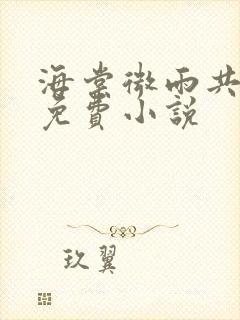 海棠微雨共
免費小說
玖翼